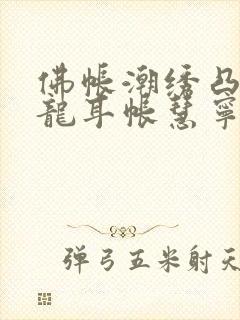 佛帐潮绣凸
龍耳帐慧寧
弹弓五米射天